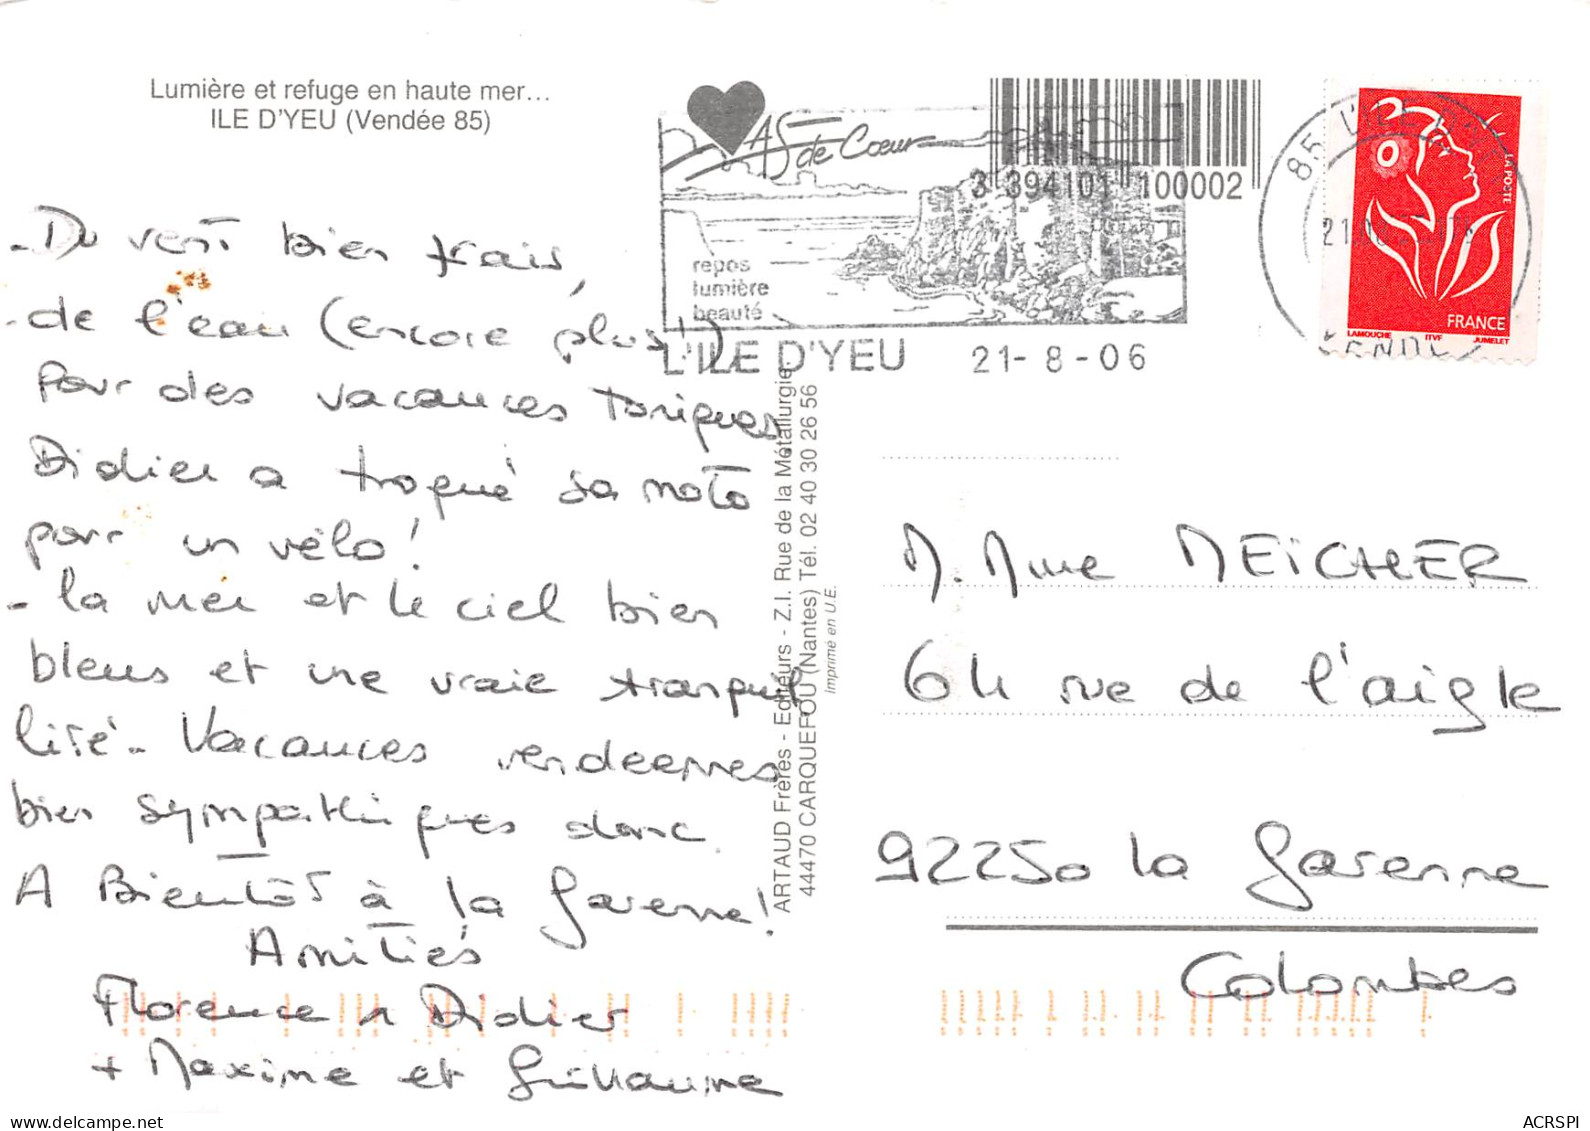 Lumière et refuge en haute mer...
ILE D'YEU (Vendée 85)
- Du vent bien frais,
- de l'eau (encore plus!)
Pour des vacances toniques
Didier a troqué sa moto
pour un vélo!
- la mer et le ciel bien
bleus et une vraie tranquil
lité - Vacances vendéennes
bien sympathiques donc.
A Bientôt à la Garenne!
Amitiés
Florence & Didier
+ Maxime et Guillaume
As de Cœur
repos
lumière
beauté
L'ILE D'YEU 21-8-06
3 394101 100002
85 L'ILE D'YEU
VENDEE
LA POSTE
FRANCE
LAMOUCHE ITVF JUMELET
ARTAUD Frères - Editeurs - Z.I. Rue de la Métallurgie
44470 CARQUEFOU (Nantes) Tél. 02 40 30 26 56
Imprimé en U.E.
M. Mme MEÏCHER
64 rue de l'aigle
92250 la Garenne
Colombes
ACRSPI